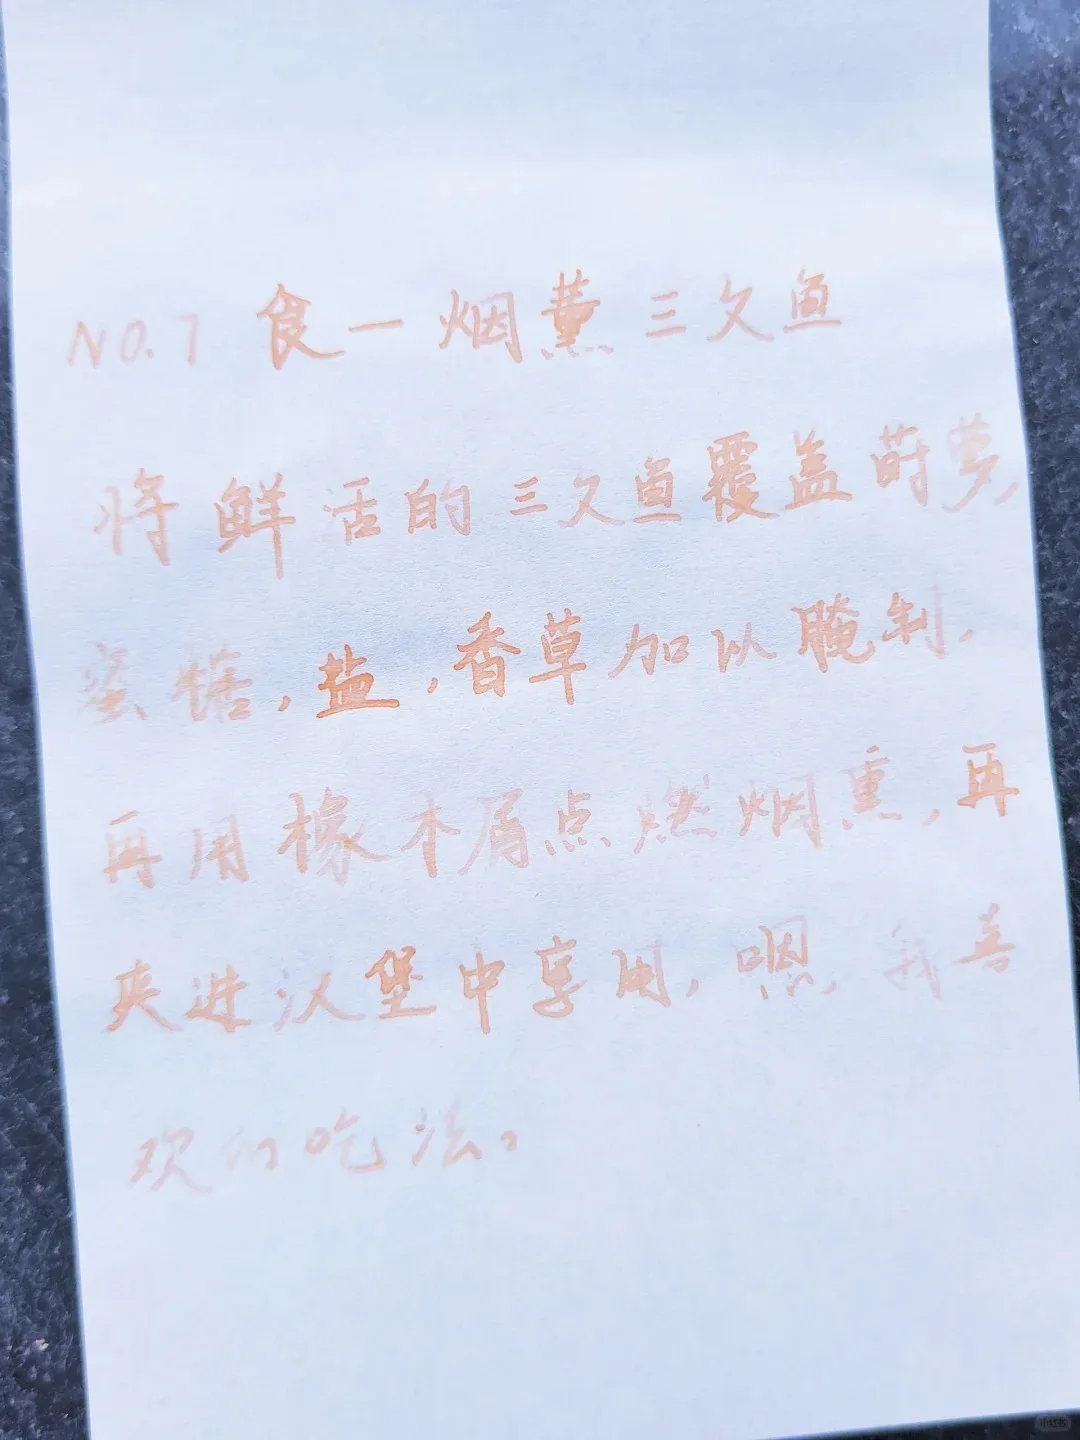 NO.7 食一烟薰三文鱼
将鲜活的三文鱼覆盖莳萝,
蜜糖,盐,香草加以腌制,
再用橡木屑点燃烟熏,再
夹进汉堡中享用,嗯,我喜
欢的吃法。
小红书